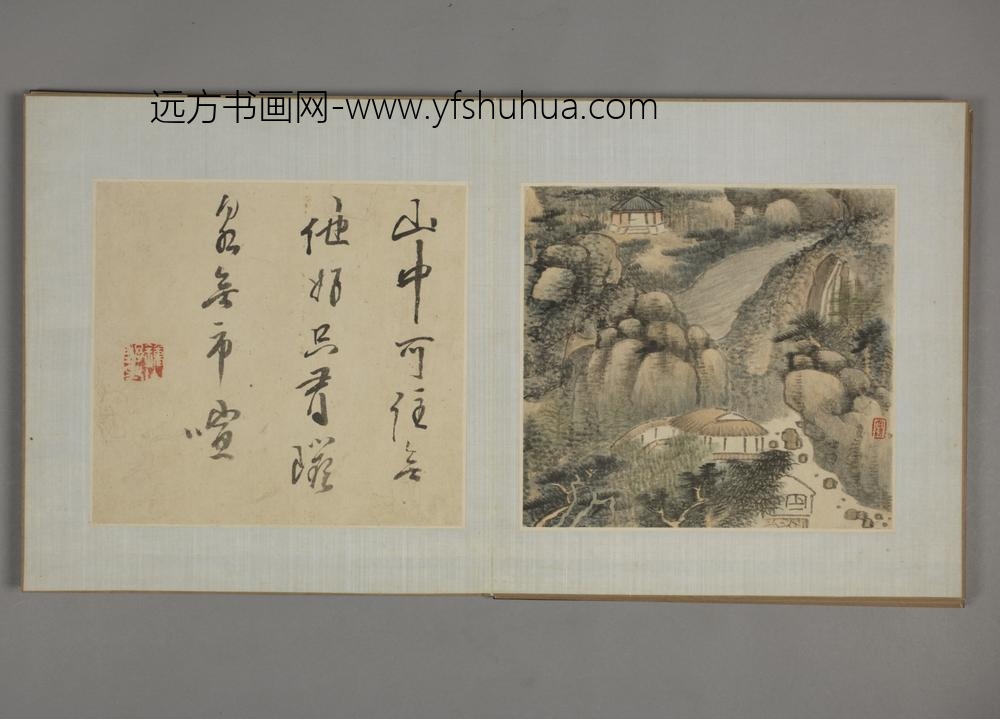 远方书画网-www.yfshuhua.com
山中可住無
他好只有
泉無市喧